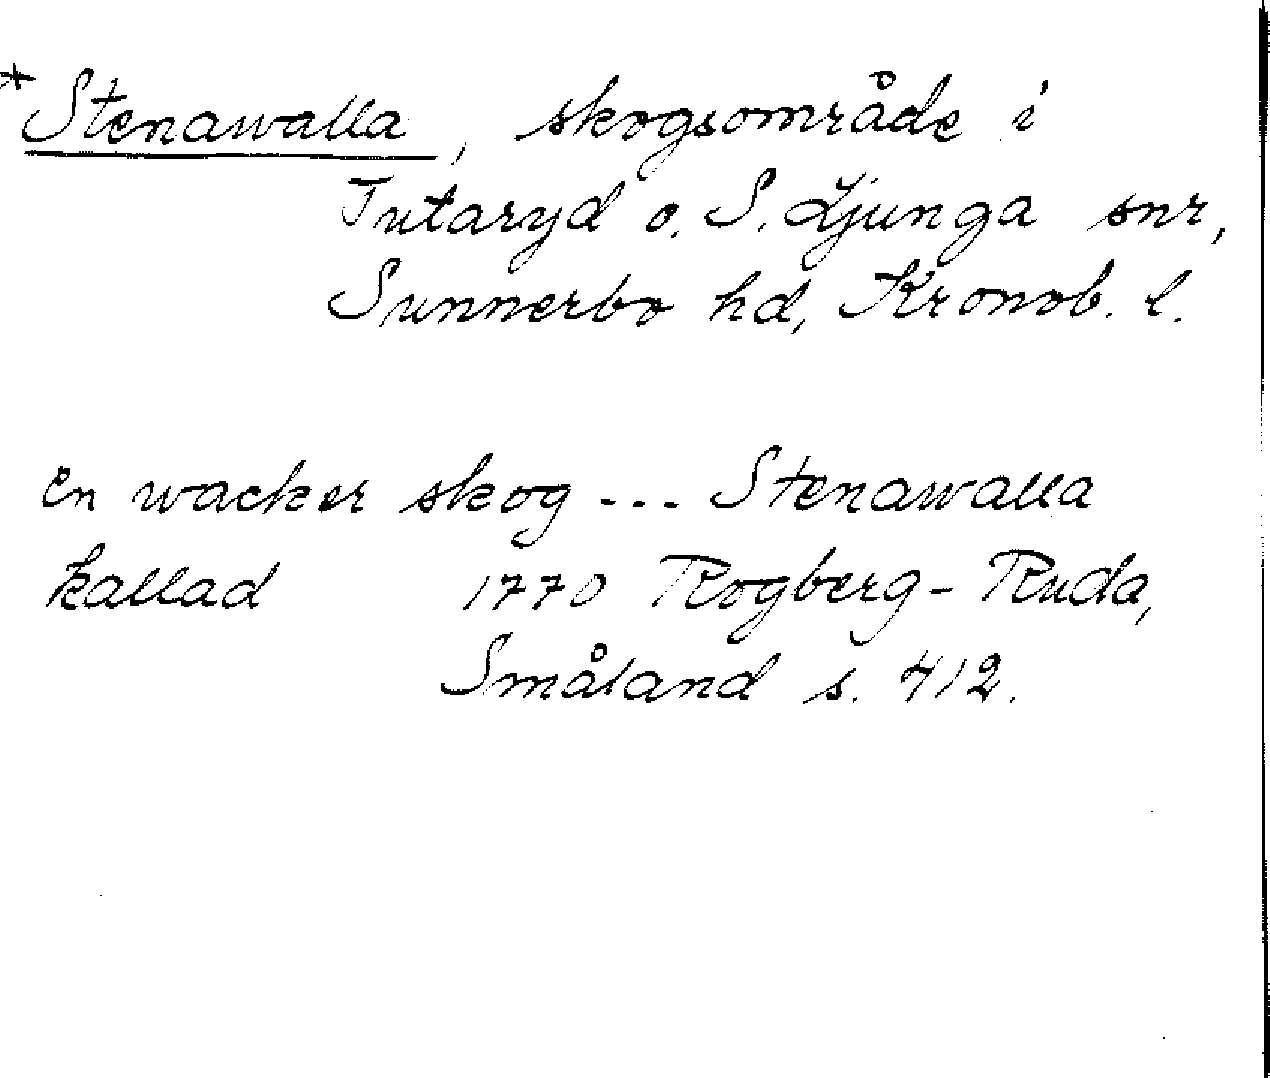 * Stenawalla, skogsområde i
Tutaryd o. S. Ljunga snr,
Sunnerbo hd, Kronob. l.
En wacker skog --- Stenawalla
kallad 1770 Rogberg-Ruda,
Småland s. 412.